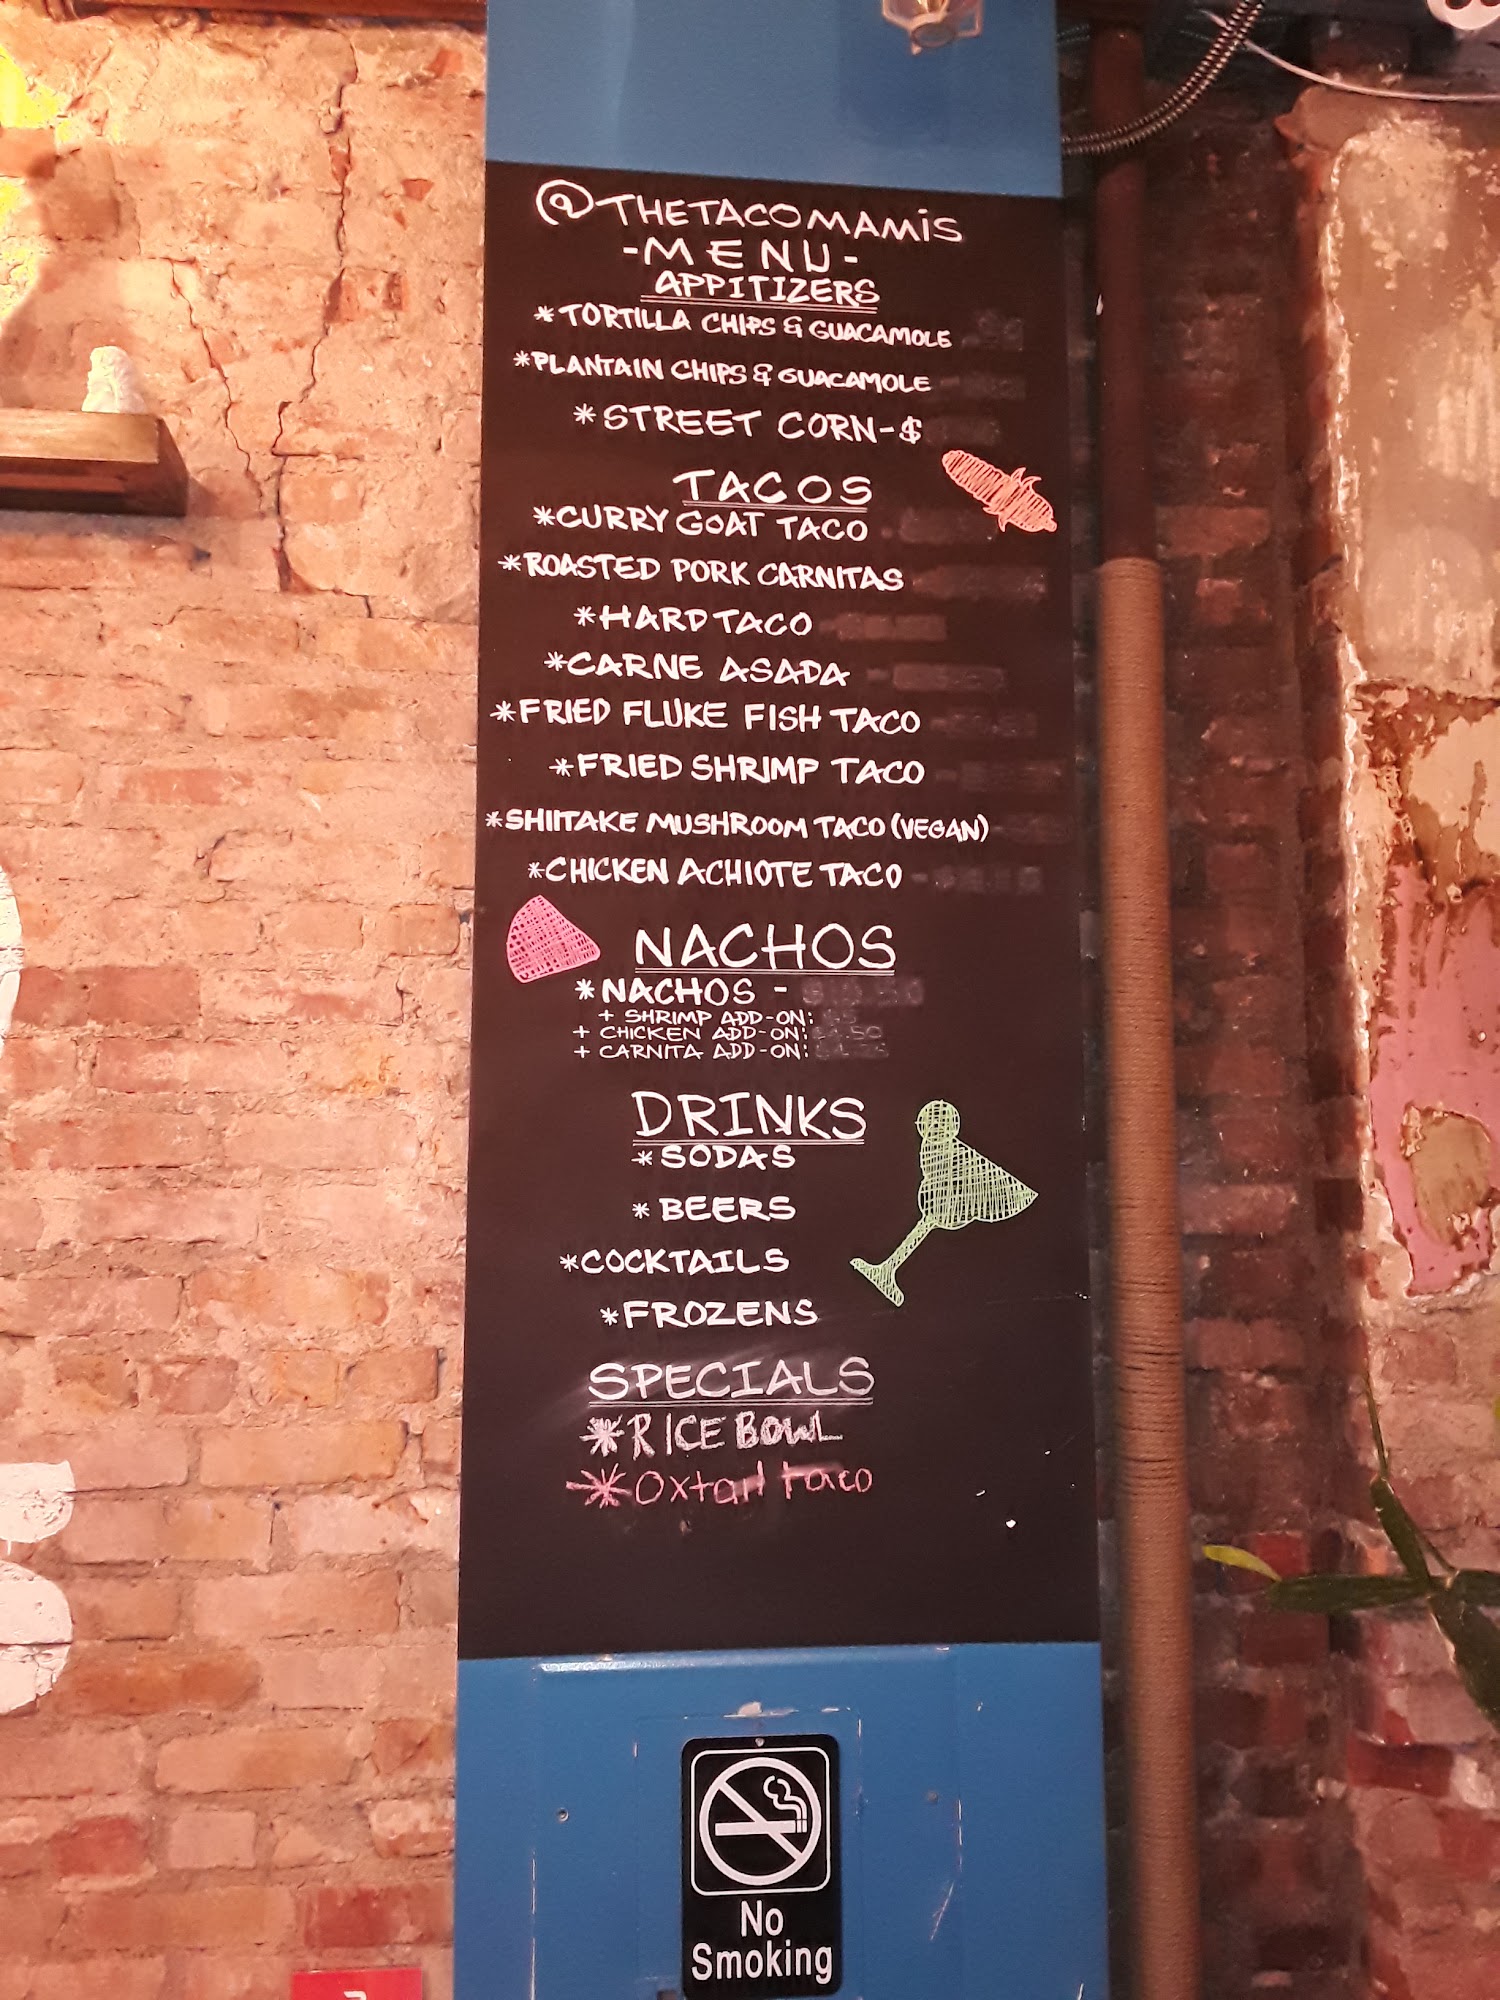 @THETACOMAMIS
-MENU-
APPITIZERS
*TORTILLA CHIPS & GUACAMOLE
*PLANTAIN CHIPS & GUACAMOLE
*STREET CORN-$
TACOS
*CURRY GOAT TACO
*ROASTED PORK CARNITAS
*HARD TACO
*CARNE ASADA
*FRIED FLUKE FISH TACO
*FRIED SHRIMP TACO
*SHIITAKE MUSHROOM TACO (VEGAN)
*CHICKEN ACHIOTE TACO -
NACHOS
*NACHOS -
+ SHRIMP ADD-ON:
+ CHICKEN ADD-ON:
+ CARNITA ADD-ON:
DRINKS
*SODAS
*BEERS
*COCKTAILS
*FROZENS
SPECIALS
*RICE BOWL
*Oxtail taco
No
Smoking